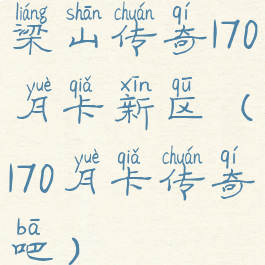 liáng shān chuán qí
梁山传奇170
yuè qiǎ xīn qū
月卡新区（
yuè qiǎ chuán qí
170月卡传奇
bā
吧）